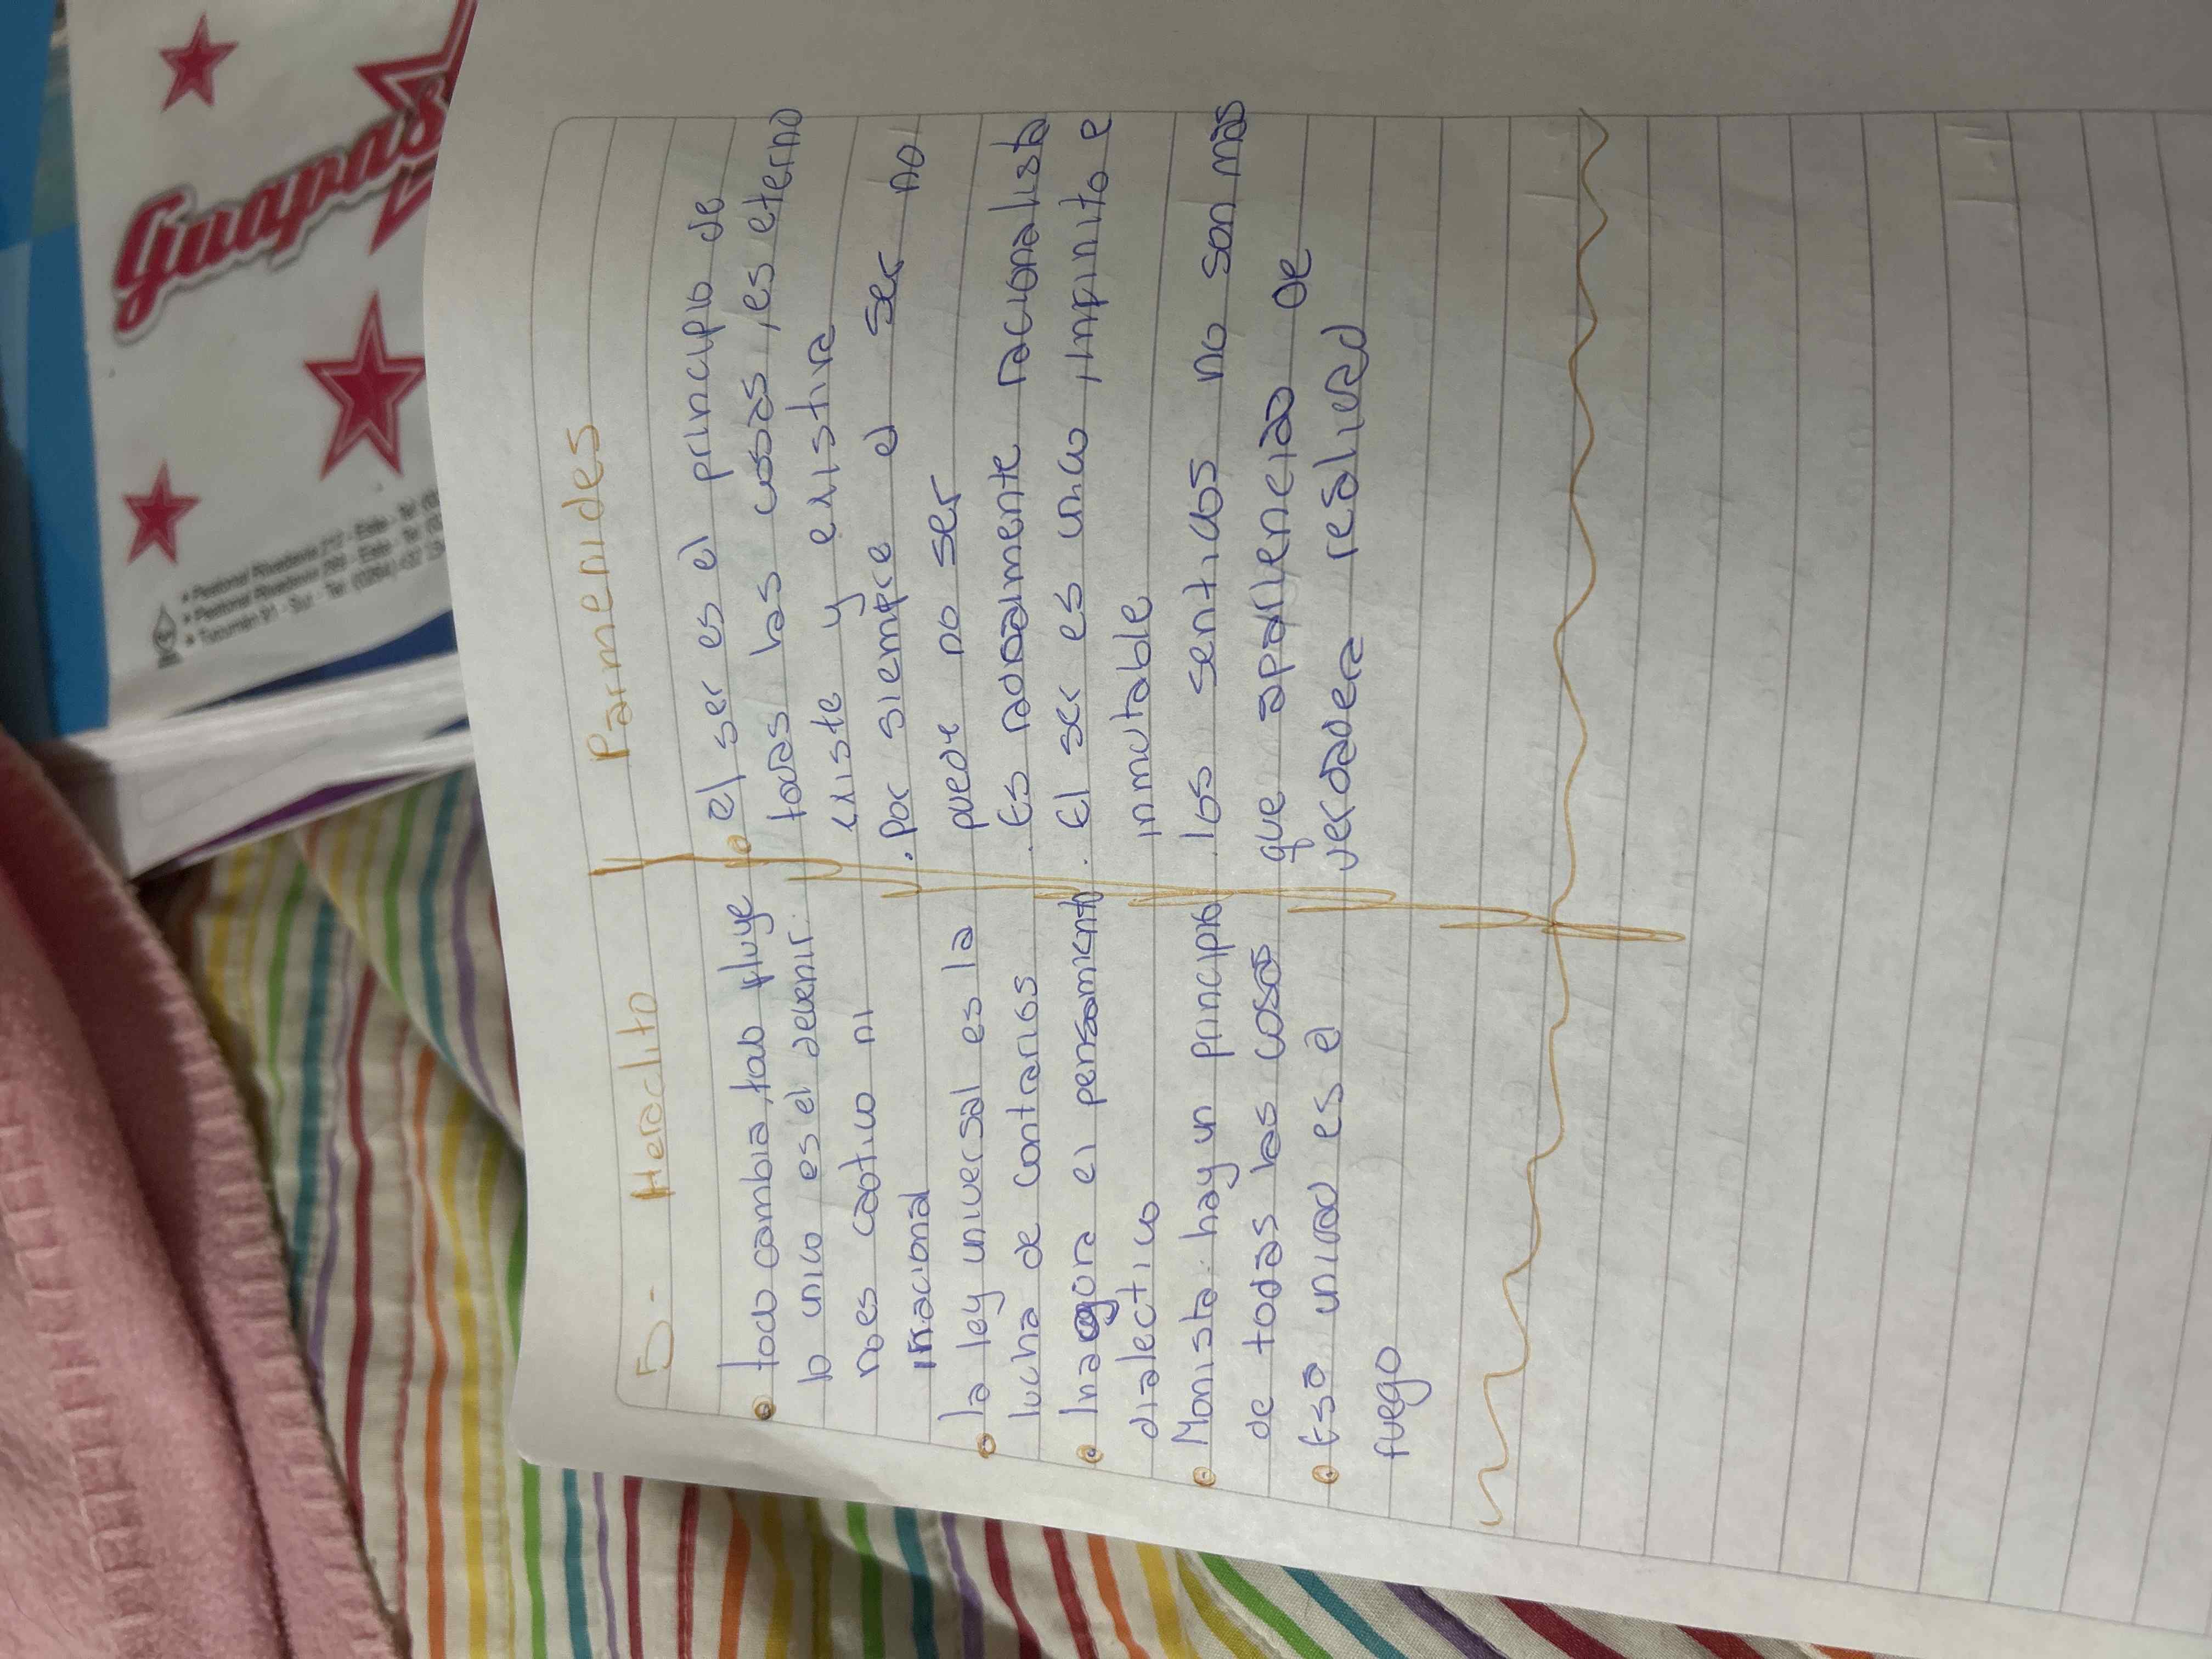 Guapas
• Peatonal Rivadavia 212 - Este - Tel
• Peatonal Rivadavia 299 - Este - Tel
• Tucumán 91 - Sur - Tel (0264) 42
5- Heraclito
todo cambia, todo fluye
lo unico es el devenir.
no es caotico ni
irracional
la ley universal es la
lucha de contrarios
Inaugura el pensamiento
dialectico
Monista: hay un principio
de todas las cosas
Esa unidad es el
fuego
Parmenides
el ser es el principio de
todas las cosas, es eterno
existe y existira
. Por siempre el ser no
puede no ser
. Es radicalmente racionalista
. El ser es unico, impinito e
inmutable
. los sentidos no son mas
que apariencias de
verdadera realidad